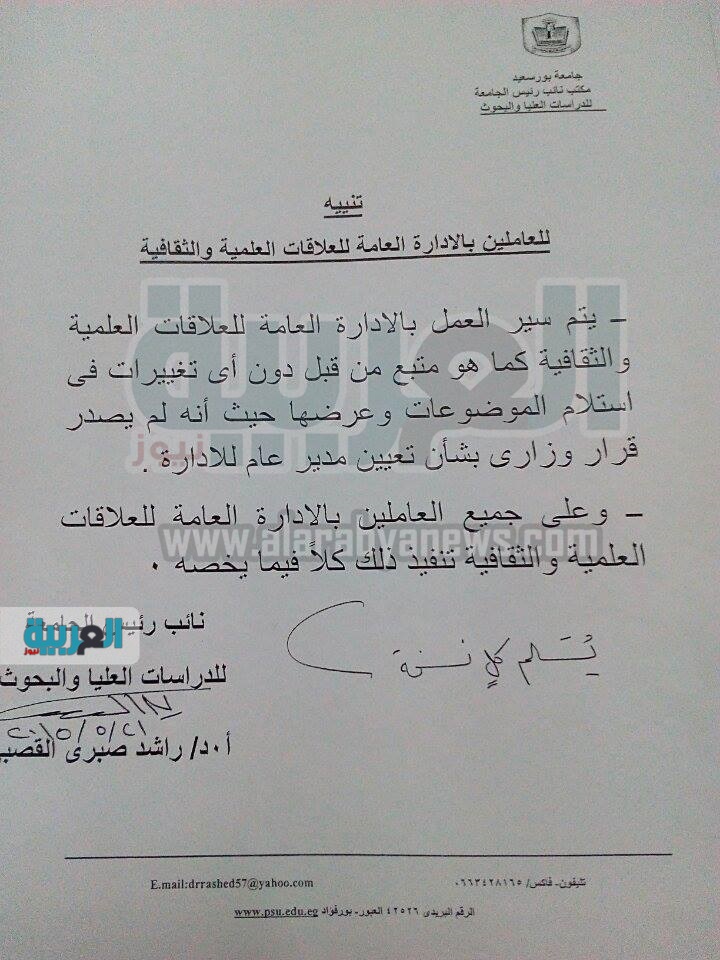 جامعة بورسعيد
مكتب نائب رئيس الجامعة
للدراسات العليا والبحوث
تنبيه
للعاملين بالادارة العامة للعلاقات العلمية والثقافية
– يتم سير العمل بالادارة العامة للعلاقات العلمية
والثقافية كما هو متبع من قبل دون أى تغييرات فى
استلام الموضوعات وعرضها حيث أنه لم يصدر
قرار وزارى بشأن تعيين مدير عام للادارة .
– وعلى جميع العاملين بالادارة العامة للعلاقات
العلمية والثقافية تنفيذ ذلك كلاً فيما يخصه .
العربية
نيوز
www.alarabyanews.com
نائب رئيس الجامعة
العربية
نيوز
يُسلم كلاً نسخة
للدراسات العليا والبحوث
٢٠١٥/٥/٢١
أ.د/ راشد صبرى القصبى
تليفون- فاكس/ ٠٦٦٣٤٢٨١٦٥
E.mail:drrashed57@yahoo.com
الرقم البريدى ٤٢٥٢٦ العبور- بورفؤاد www.psu.edu.eg